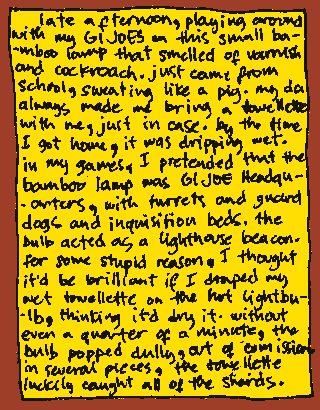 late afternoon, playing around
with my GIJOES on this small ba-
-mboo lamp that smelled of varnish
and cockroach. just came from
school, sweating like a pig. my da
always made me bring a towellette
with me, just in case. by the time
I got home, it was dripping wet.
in my games, I pretended that the
bamboo lamp was GIJOE Headqu-
-arters, with turrets and guard
dogs and inquisition beds. the
bulb acted as a lighthouse beacon.
for some stupid reason, I thought
it'd be brilliant if I draped my
wet towellette on the hot lightbu-
-lb, thinking it'd dry it. without
even a quarter of a minute, the
bulb popped dully, out of comission
in several pieces, the towellette
luckily caught all of the shards.